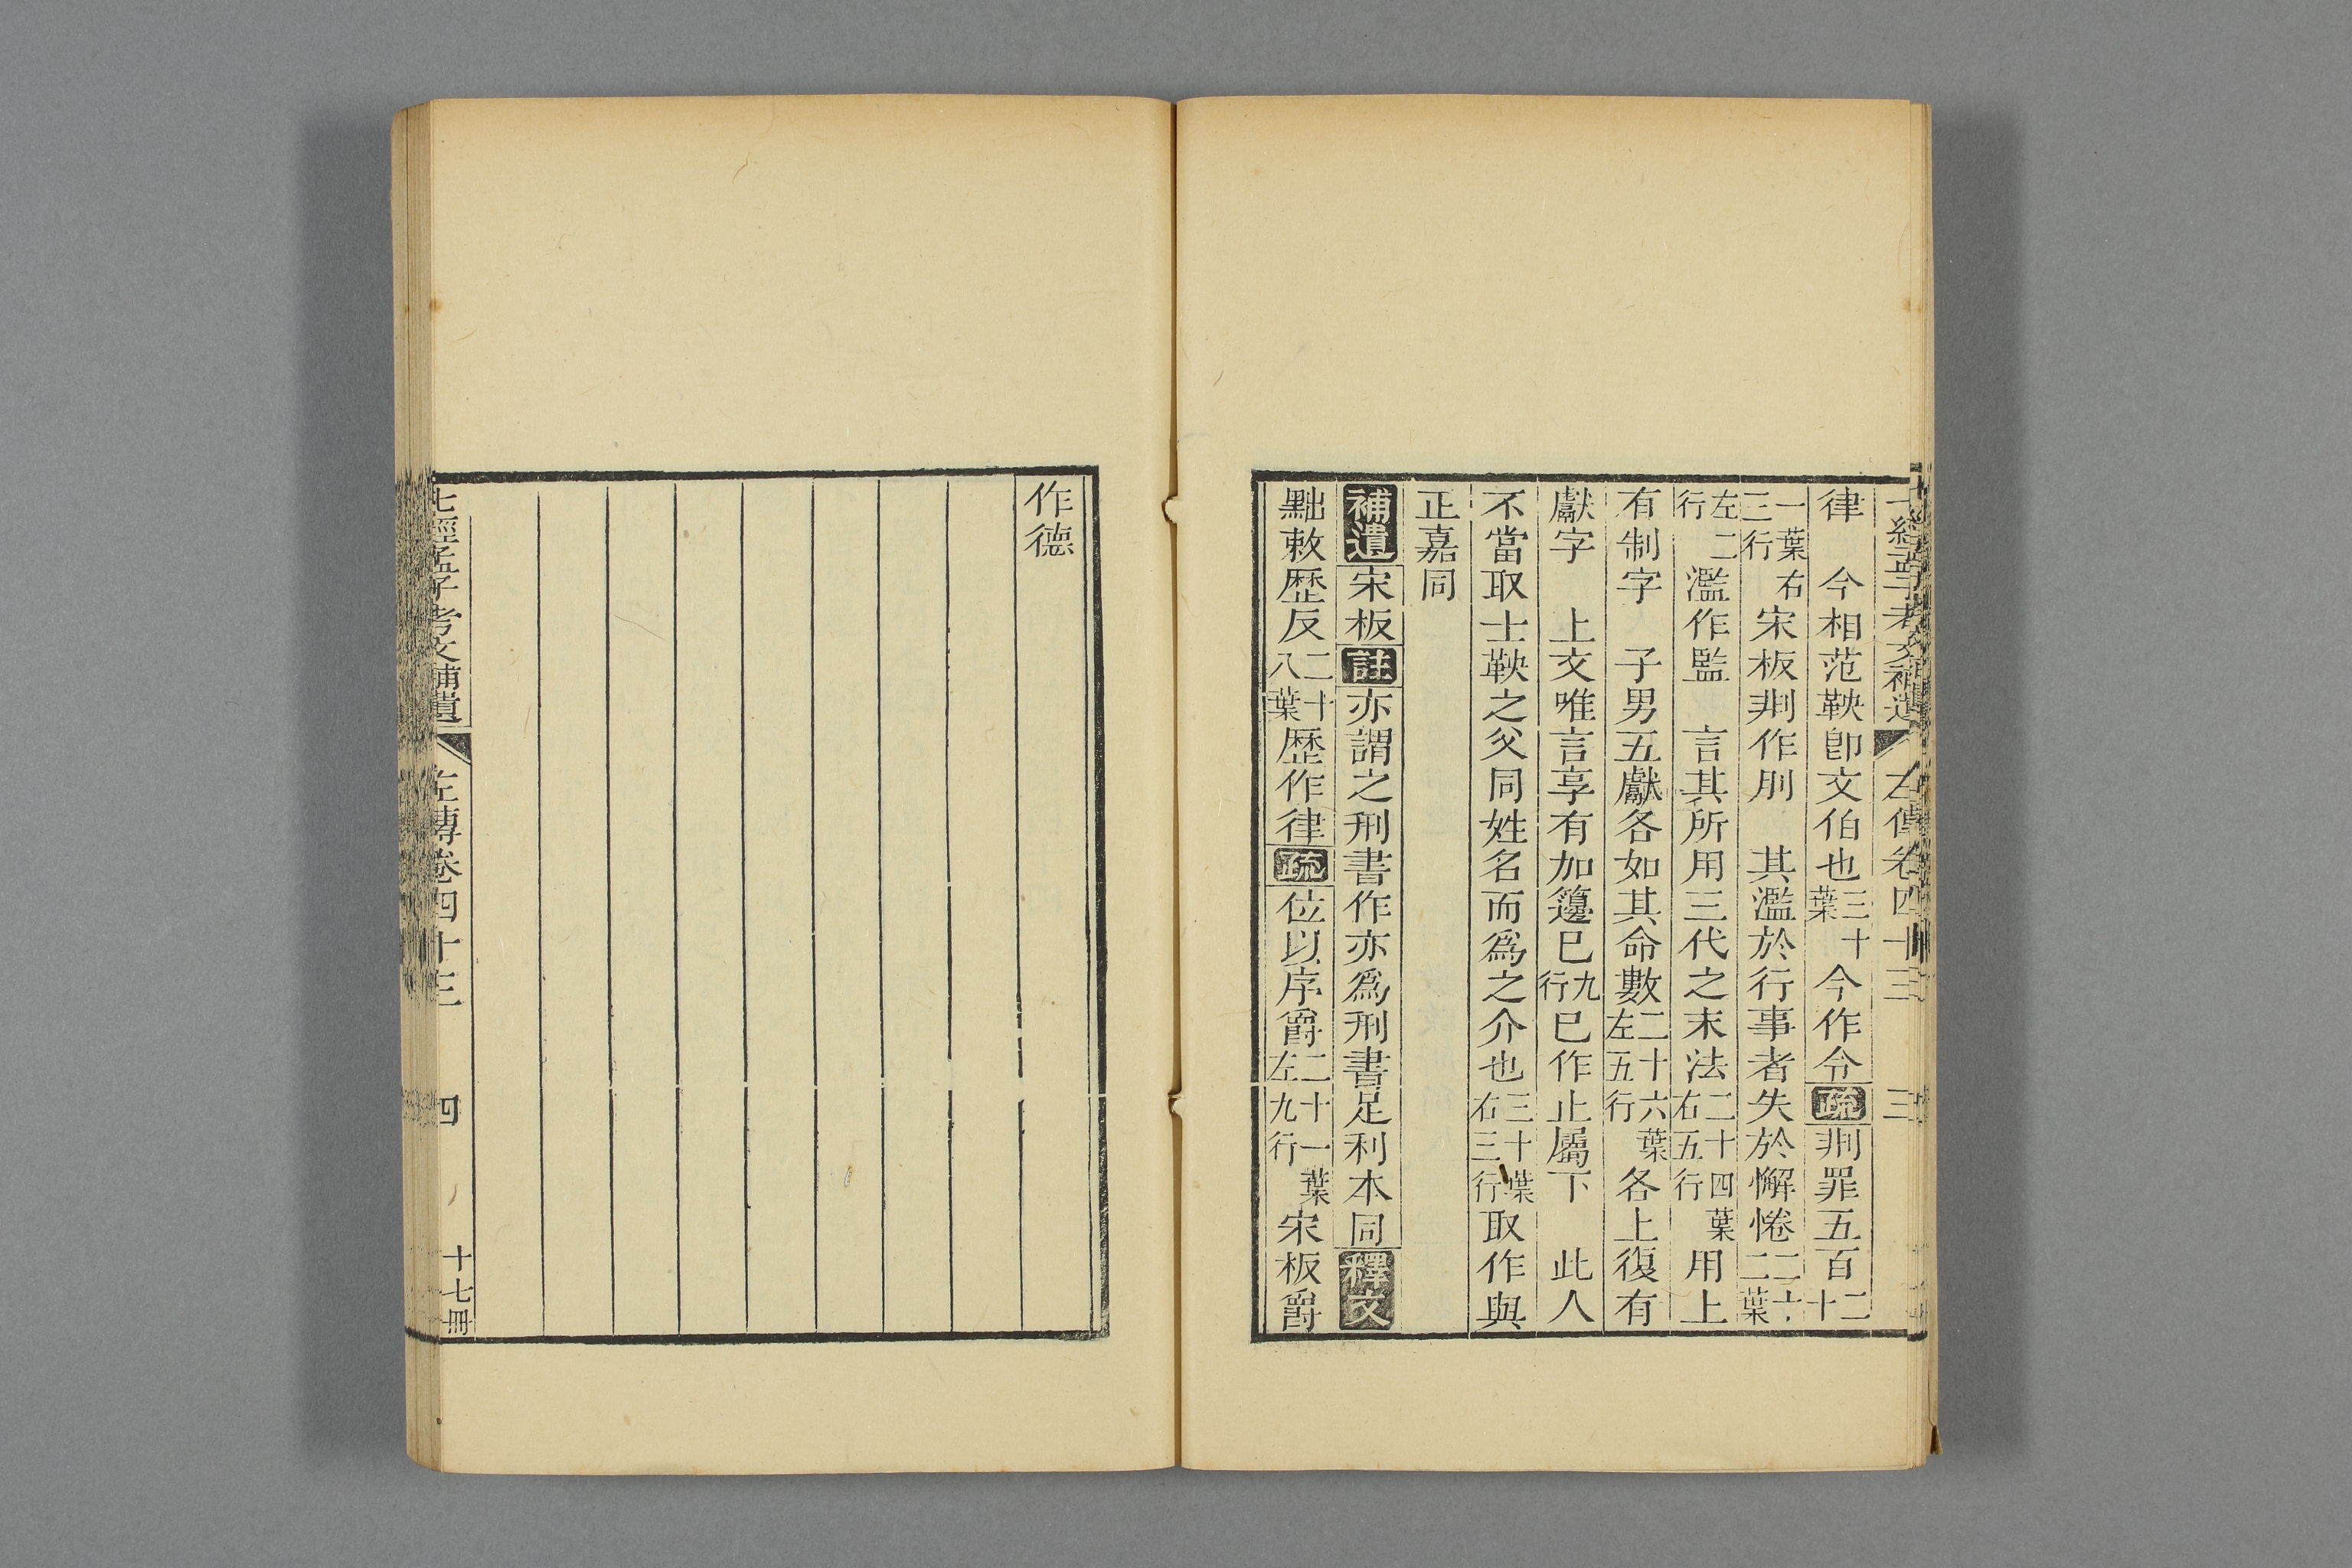 七經孟子考文補遺 左傳卷四十三 三
律 今相范鞅卽文伯也三十葉今作令疏剕罪五百二十
一葉右三行宋板剕作刖 其濫於行事者失於懈惓二十二葉
左二行濫作監 言其所用三代之末法二十四葉右五行用上
有制字 子男五獻各如其命數二十六葉左五行各上復有
獻字 上文唯言享有加籩已九行已作止屬下 此人
不當取士鞅之父同姓名而爲之介也三十葉右三行取作與
正嘉同
補遺宋板註亦謂之刑書作亦爲刑書足利本同釋文
黜敕歷反二十八葉歷作律疏位以序爵二十一葉左九行宋板爵
作德
七經孟子考文補遺 左傳卷四十三 四 十七冊